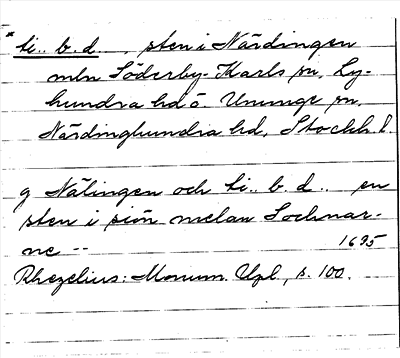 * ti.. b. d. , sten i Närdingen
mln Söderby-Karls sn, Ly-
hundra hd o. Ununge sn,
Närdinghundra hd, Stockh. l.
g Nälingen och ti.. b. d.. en
sten i siön melan Sochnar-
ne --
1635
Rhezelius: Monum. Upl, s. 100.